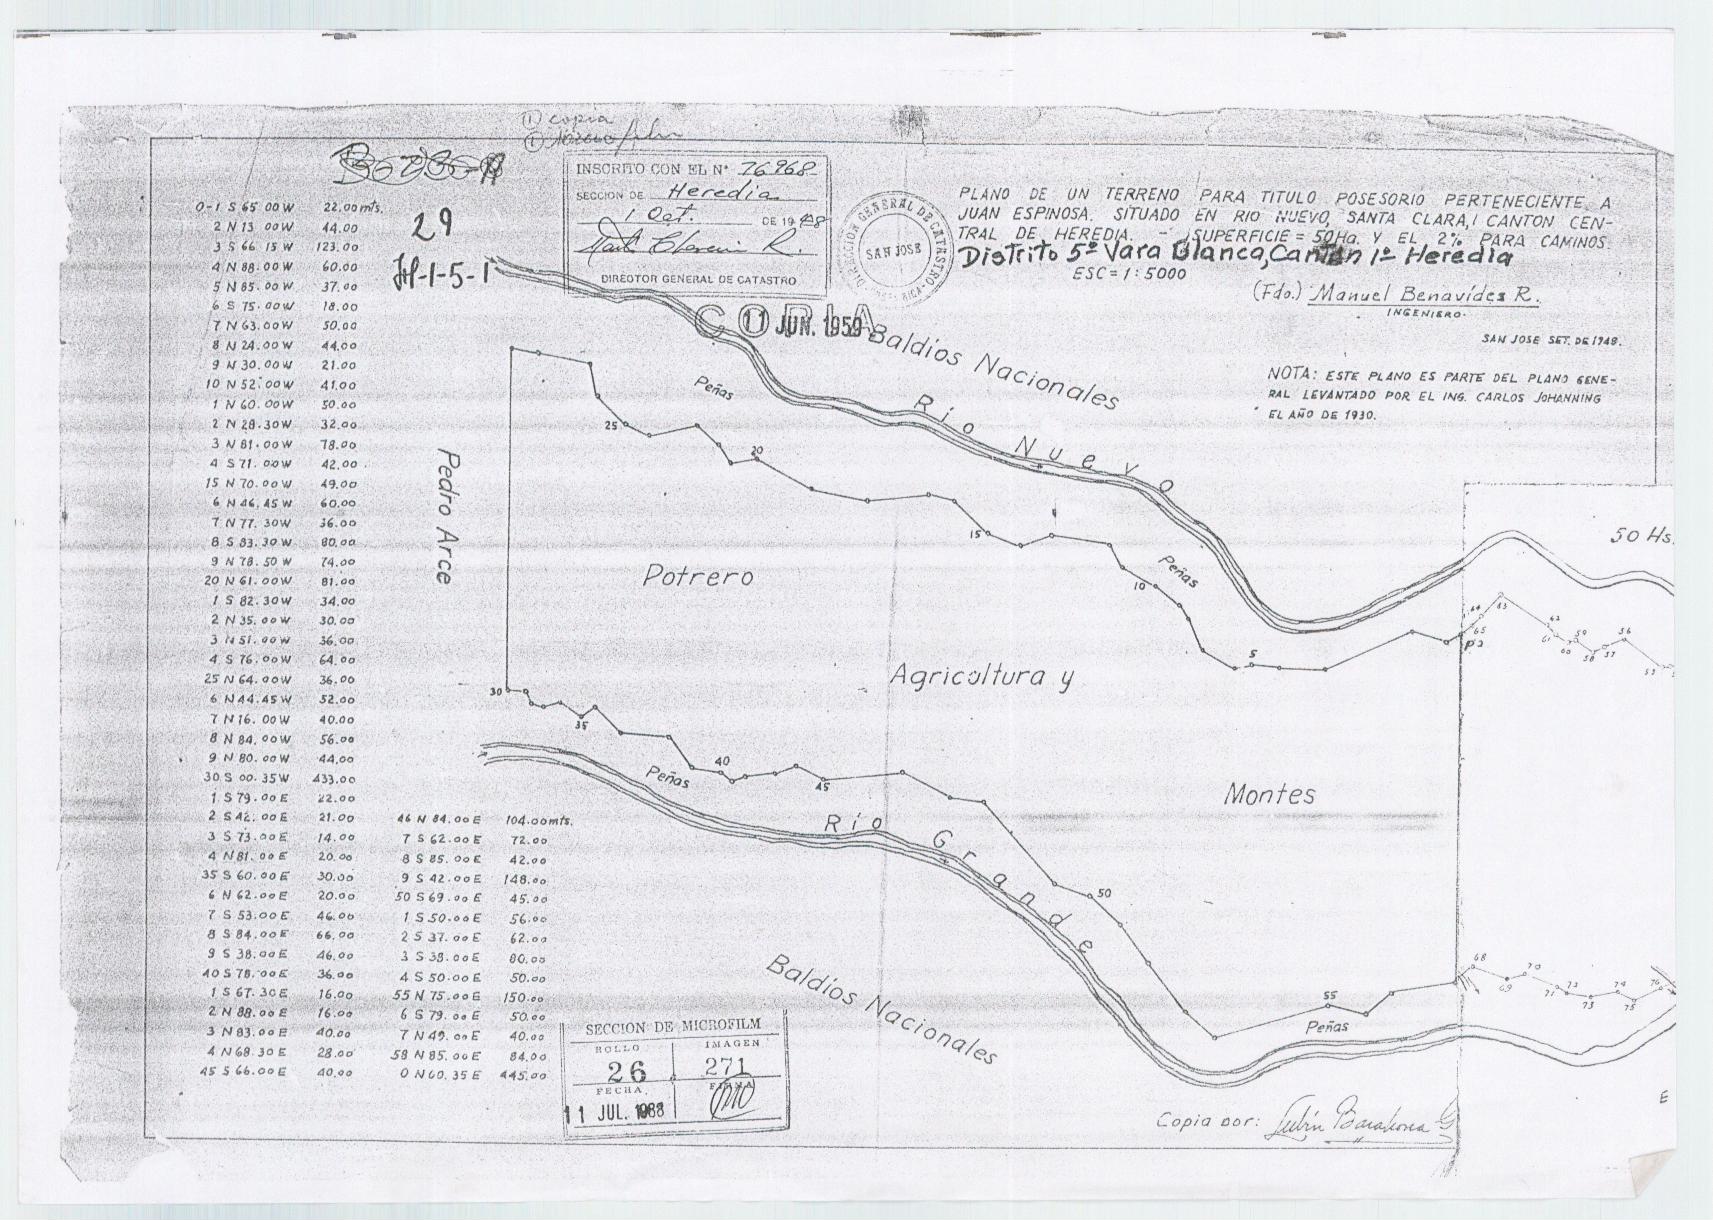 ① copia
① microfilm
INSCRITO CON EL Nº 76968
SECCION DE Heredia
1 Oct. DE 1948
DIRECTOR GENERAL DE CATASTRO
DIRECCION GENERAL DE CATASTRO
SAN JOSE
COPIA
11 JUN. 1959
29
H-1-5-1
PLANO DE UN TERRENO PARA TITULO POSESORIO PERTENECIENTE A
JUAN ESPINOSA. SITUADO EN RIO NUEVO, SANTA CLARA, 1 CANTON CEN-
TRAL DE HEREDIA. - SUPERFICIE = 50Ha. Y EL 2% PARA CAMINOS
Distrito 5º Vara Blanca, Cantón 1º Heredia
ESC = 1:5000
(Fdo.) Manuel Benavídes R.
INGENIERO.
SAN JOSE SET. DE 1948.
NOTA: ESTE PLANO ES PARTE DEL PLANO GENE-
RAL LEVANTADO POR EL ING. CARLOS JOHANNING
EL AÑO DE 1930.
0-1 S 65 00 W 22.00 mts.
2 N 13 00 W 44.00
3 S 66 15 W 123.00
4 N 88.00 W 60.00
5 N 85.00 W 37.00
6 S 75.00 W 18.00
7 N 63.00 W 50.00
8 N 24.00 W 44.00
9 N 30.00 W 21.00
10 N 52.00 W 41.00
1 N 60.00 W 50.00
2 N 28.30 W 32.00
3 N 81.00 W 78.00
4 S 71.00 W 42.00
15 N 70.00 W 49.00
6 N 46.45 W 60.00
7 N 77.30 W 36.00
8 S 83.30 W 80.00
9 N 78.50 W 74.00
20 N 61.00 W 81.00
1 S 82.30 W 34.00
2 N 35.00 W 30.00
3 N 51.00 W 36.00
4 S 76.00 W 64.00
25 N 64.00 W 36.00
6 N 44.45 W 52.00
7 N 16.00 W 40.00
8 N 84.00 W 56.00
9 N 80.00 W 44.00
30 S 00.35 W 433.00
1 S 79.00 E 22.00
2 S 42.00 E 21.00
3 S 73.00 E 14.00
4 N 81.00 E 20.00
35 S 60.00 E 30.00
6 N 62.00 E 20.00
7 S 53.00 E 46.00
8 S 84.00 E 66.00
9 S 38.00 E 46.00
40 S 78.00 E 36.00
1 S 67.30 E 16.00
2 N 88.00 E 16.00
3 N 83.00 E 40.00
4 N 68.30 E 28.00
45 S 66.00 E 40.00
46 N 84.00 E 104.00 mts.
7 S 62.00 E 72.00
8 S 85.00 E 42.00
9 S 42.00 E 148.00
50 S 69.00 E 45.00
1 S 50.00 E 56.00
2 S 37.00 E 62.00
3 S 38.00 E 80.00
4 S 50.00 E 50.00
55 N 75.00 E 150.00
6 S 79.00 E 50.00
7 N 49.00 E 40.00
58 N 85.00 E 84.00
0 N 60.35 E 445.00
Baldíos Nacionales
Río Nuevo
Peñas
25
20
15
10
5
Peñas
Pedro Arce
Potrero
Agricultura y
Montes
50 Hs.
64
63
65
62
61
60
59
58
57
56
30
35
40
45
50
55
Peñas
Río Grande
Peñas
68
69
70
71
72
73
74
75
76
Baldíos Nacionales
E
SECCION DE MICROFILM
ROLLO IMAGEN
26 271
FECHA FIRMA
11 JUL. 1988
Copia por: Lubín Barahona G